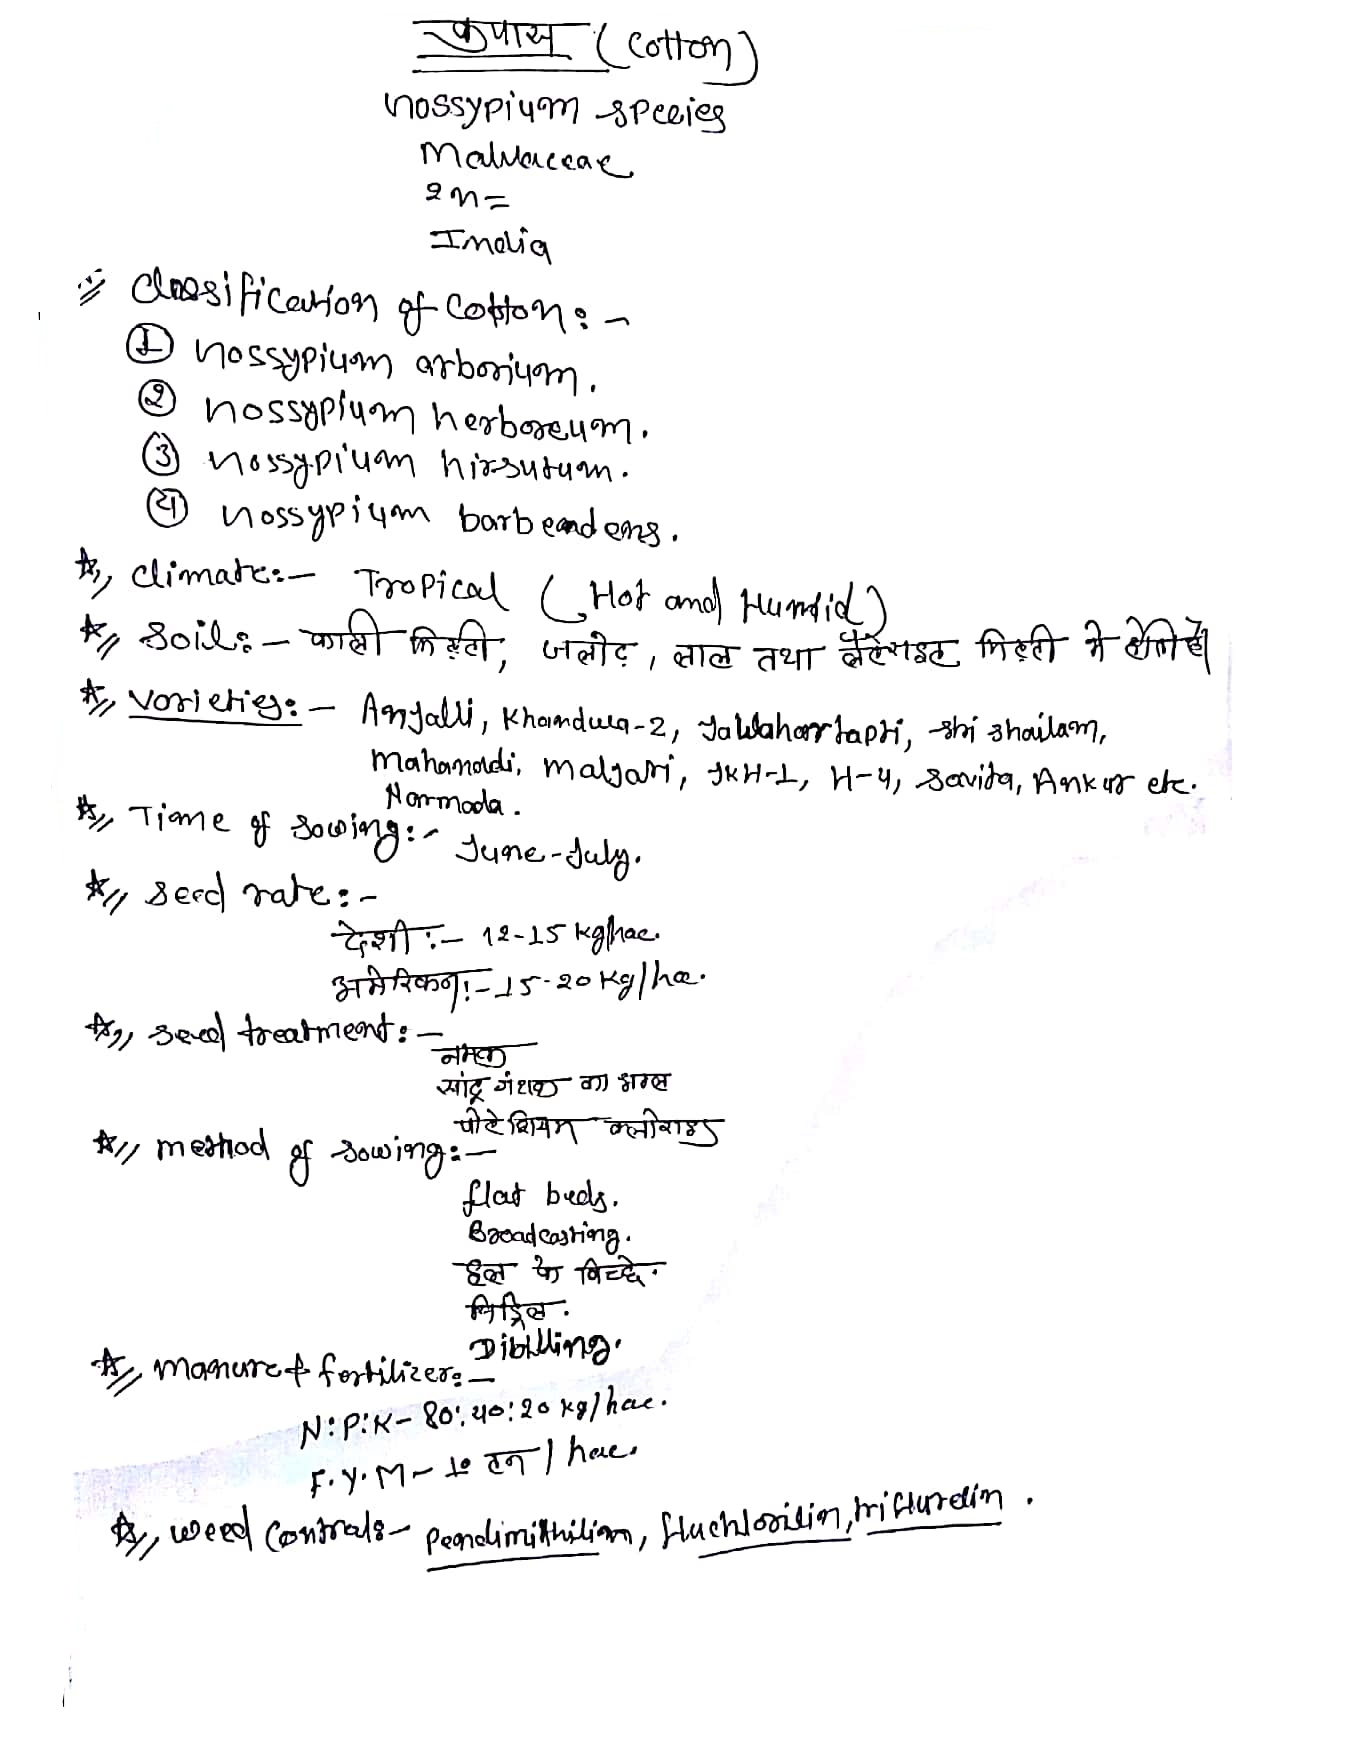 कपास (Cotton)
Nossypium species
Malvaceae
2n=
India
Classification of Cotton:-
① Nossypium arborium.
② Nossypium herboreum.
③ Nossypium hirsutum.
④ Nossypium barbendens.
Climate:- Tropical (Hot and Humid)
Soil:- काली मिट्टी, जलोढ़, लाल तथा लैटेराइट मिट्टी में होती है।
Varieties:- Anjalli, Khandwa-2, Jawahartapti, Shri Shailam,
Mahanaldi, Maljari, JKH-1, H-4, Savita, Ankur etc.
Narmada.
Time of Sowing:- June-July.
Seed rate:-
देशी:- 12-15 kg/hac.
अमेरिकन:- 15-20 Kg/ha.
Seed treatment:-
नमक
सांद्र गंधक का अम्ल
पोटेशियम क्लोराइड
Method of Sowing:-
flat beds.
Broadcasting.
हल के पिच्छे.
सिड्रिल.
Dibilling.
Manure & fertilizer:-
N:P:K- 80:40:20 kg/hac.
F.Y.M- 10 टन/hac.
Weed Control:- Pendimithilian, fluchlorilin, trifluredin.